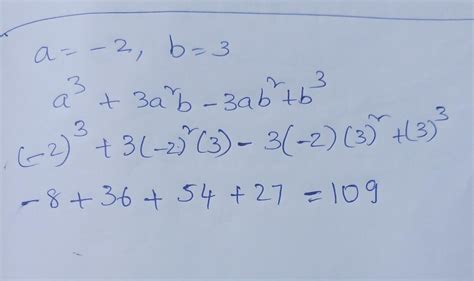 a = -2, b = 3
a³ + 3a²b - 3ab² + b³
(-2)³ + 3(-2)²(3) - 3(-2)(3)² + (3)³
-8 + 36 + 54 + 27 = 109